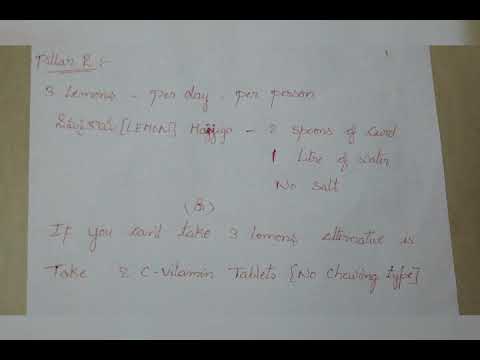 Pillar 2 :-
3 Lemons - per day - per person
[LEMON] Majjiga - 2 spoons of curd
1 Litre of water
No salt
(or)
If you can't take 3 lemons alternative is
Take 2 C-Vitamin Tablets [No chewing type]